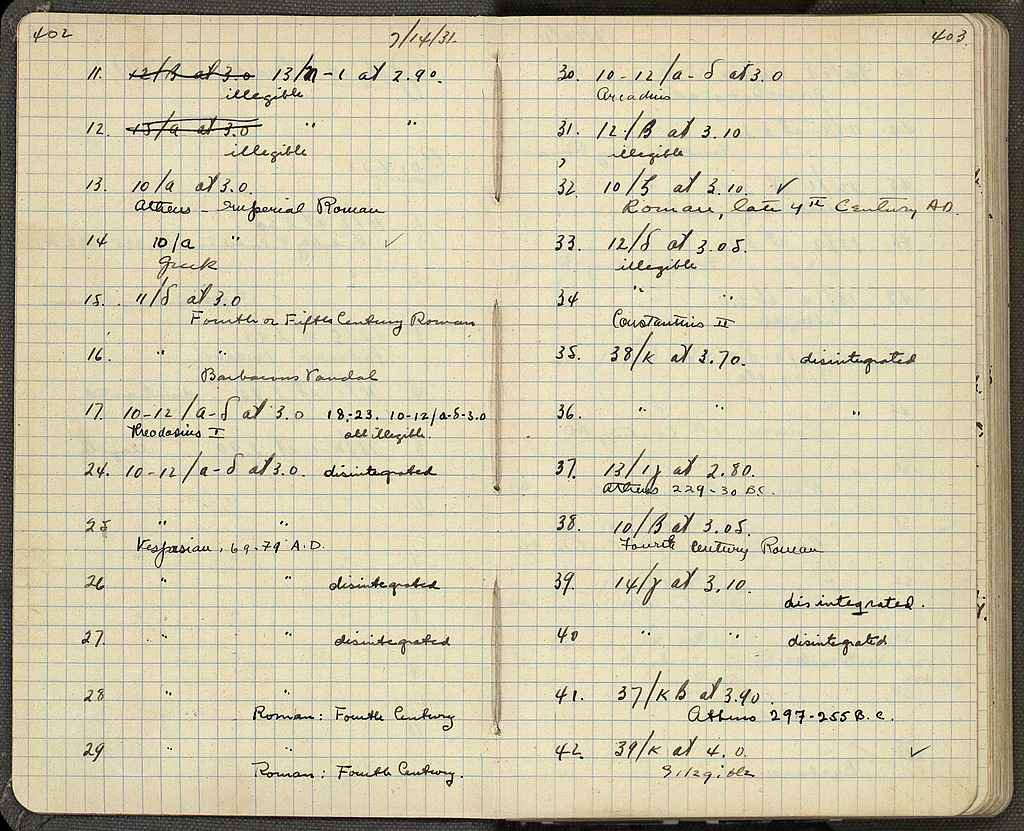 402
7/14/31
11. 12/β at 3.0 13/η-1 at 2.90.
illegible
12. 13/a at 3.0 " "
illegible
13. 10/a at 3.0.
Athens - Imperial Roman
14 10/a "
Greek
15. 11/δ at 3.0
Fourth or Fifth Century Roman
16. " "
Barbarous Vandal
17. 10-12/a-δ at 3.0 18-23. 10-12/a-δ-3.0
Theodosius I all illegible.
24. 10-12/a-δ at 3.0. disintegrated
25 " "
Vespasian, 69-79 A.D.
26 " " disintegrated
27. " " disintegrated
28 " "
Roman: Fourth Century
29 " "
Roman: Fourth Century.
403
30. 10-12/a-δ at 3.0
Arcadius
31. 12/β at 3.10
illegible
32. 10/ξ at 3.10. ✓
Roman, late 4th Century A.D.
33. 12/δ at 3.05.
illegible
34 " "
Constantius II
35. 38/K at 3.70. disintegrated
36. " " "
37. 13/ιγ at 2.80.
Athens 229-30 B.C.
38. 10/β at 3.05.
Fourth Century Roman
39. 14/γ at 3.10.
disintegrated.
40 " " disintegrated
41. 37/κβ at 3.90.
Athens 297-255 B.C.
42. 39/κ at 4.0. ✓
Illegible